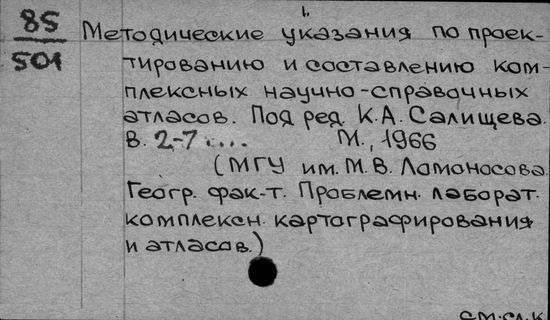 1.
85
501
Методические указания по проек-
тированию и составлению ком-
плексных научно-справочных
атласов. Под ред. К.А. Салищева.
В. 2-7.... М., 1966
(МГУ им. М.В. Ломоносова.
Геогр. фак-т. Проблемн. лаборат.
комплексн. картографирования
и атласов.)
см. сл. к